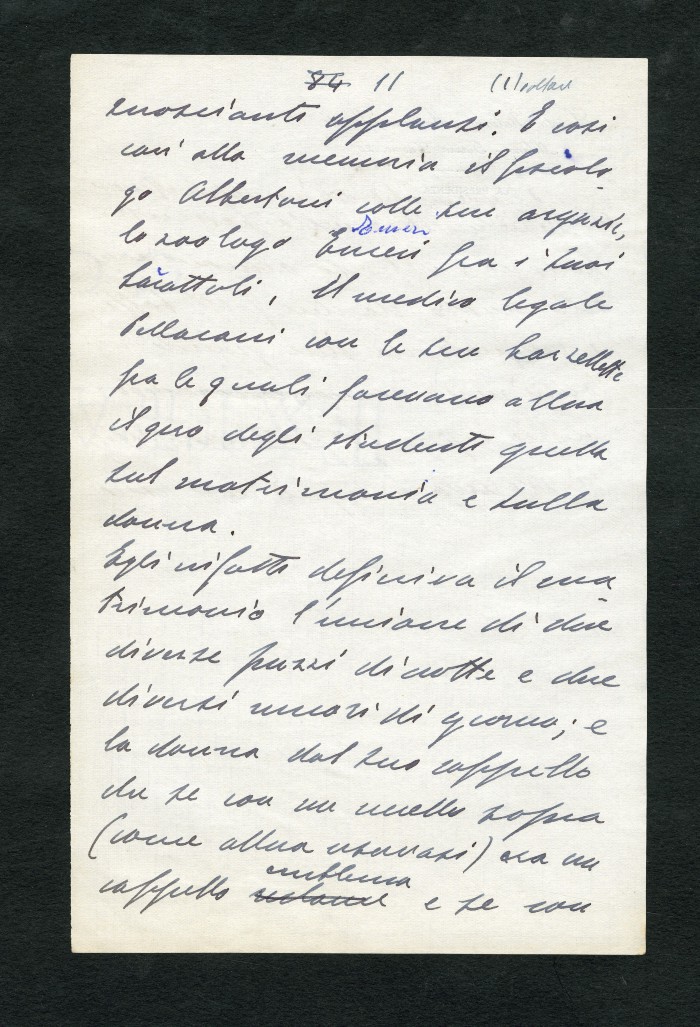 84 11
scroscianti applausi. E così
cari alla memoria il fisiolo
go Albertoni colle sue arguzie,
Emeri
lo zoologo Emeri fra i suoi
barattoli, il medico legale
Pellacani con le sue barzellette
fra le quali facevano allora
il giro degli studenti quella
sul matrimonio e sulla
donna.
Egli infatti definiva il ma
trimonio l'unione di due
diverse puzzi di notte e due
diversi umori di giorno; e
la donna dal suo cappello
che se con un uccello sopra
(come allora usavasi) era un
emblema
cappello e se con